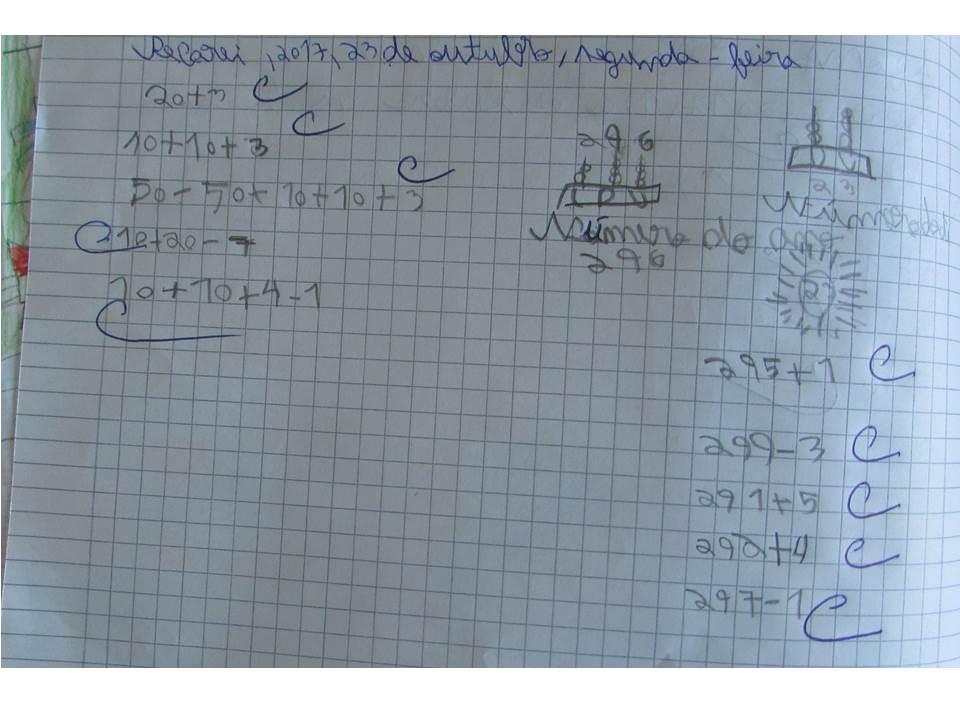 Recarei, 2017, 23 de outubro, segunda-feira
20+3 C
10+10+3 C
50-50+10+10+3 C
C 10+20-7
10+10+4-1
C
296
Número do
296
23
Número do
23
295+1 C
299-3 C
291+5 C
292+4 C
297-1 C